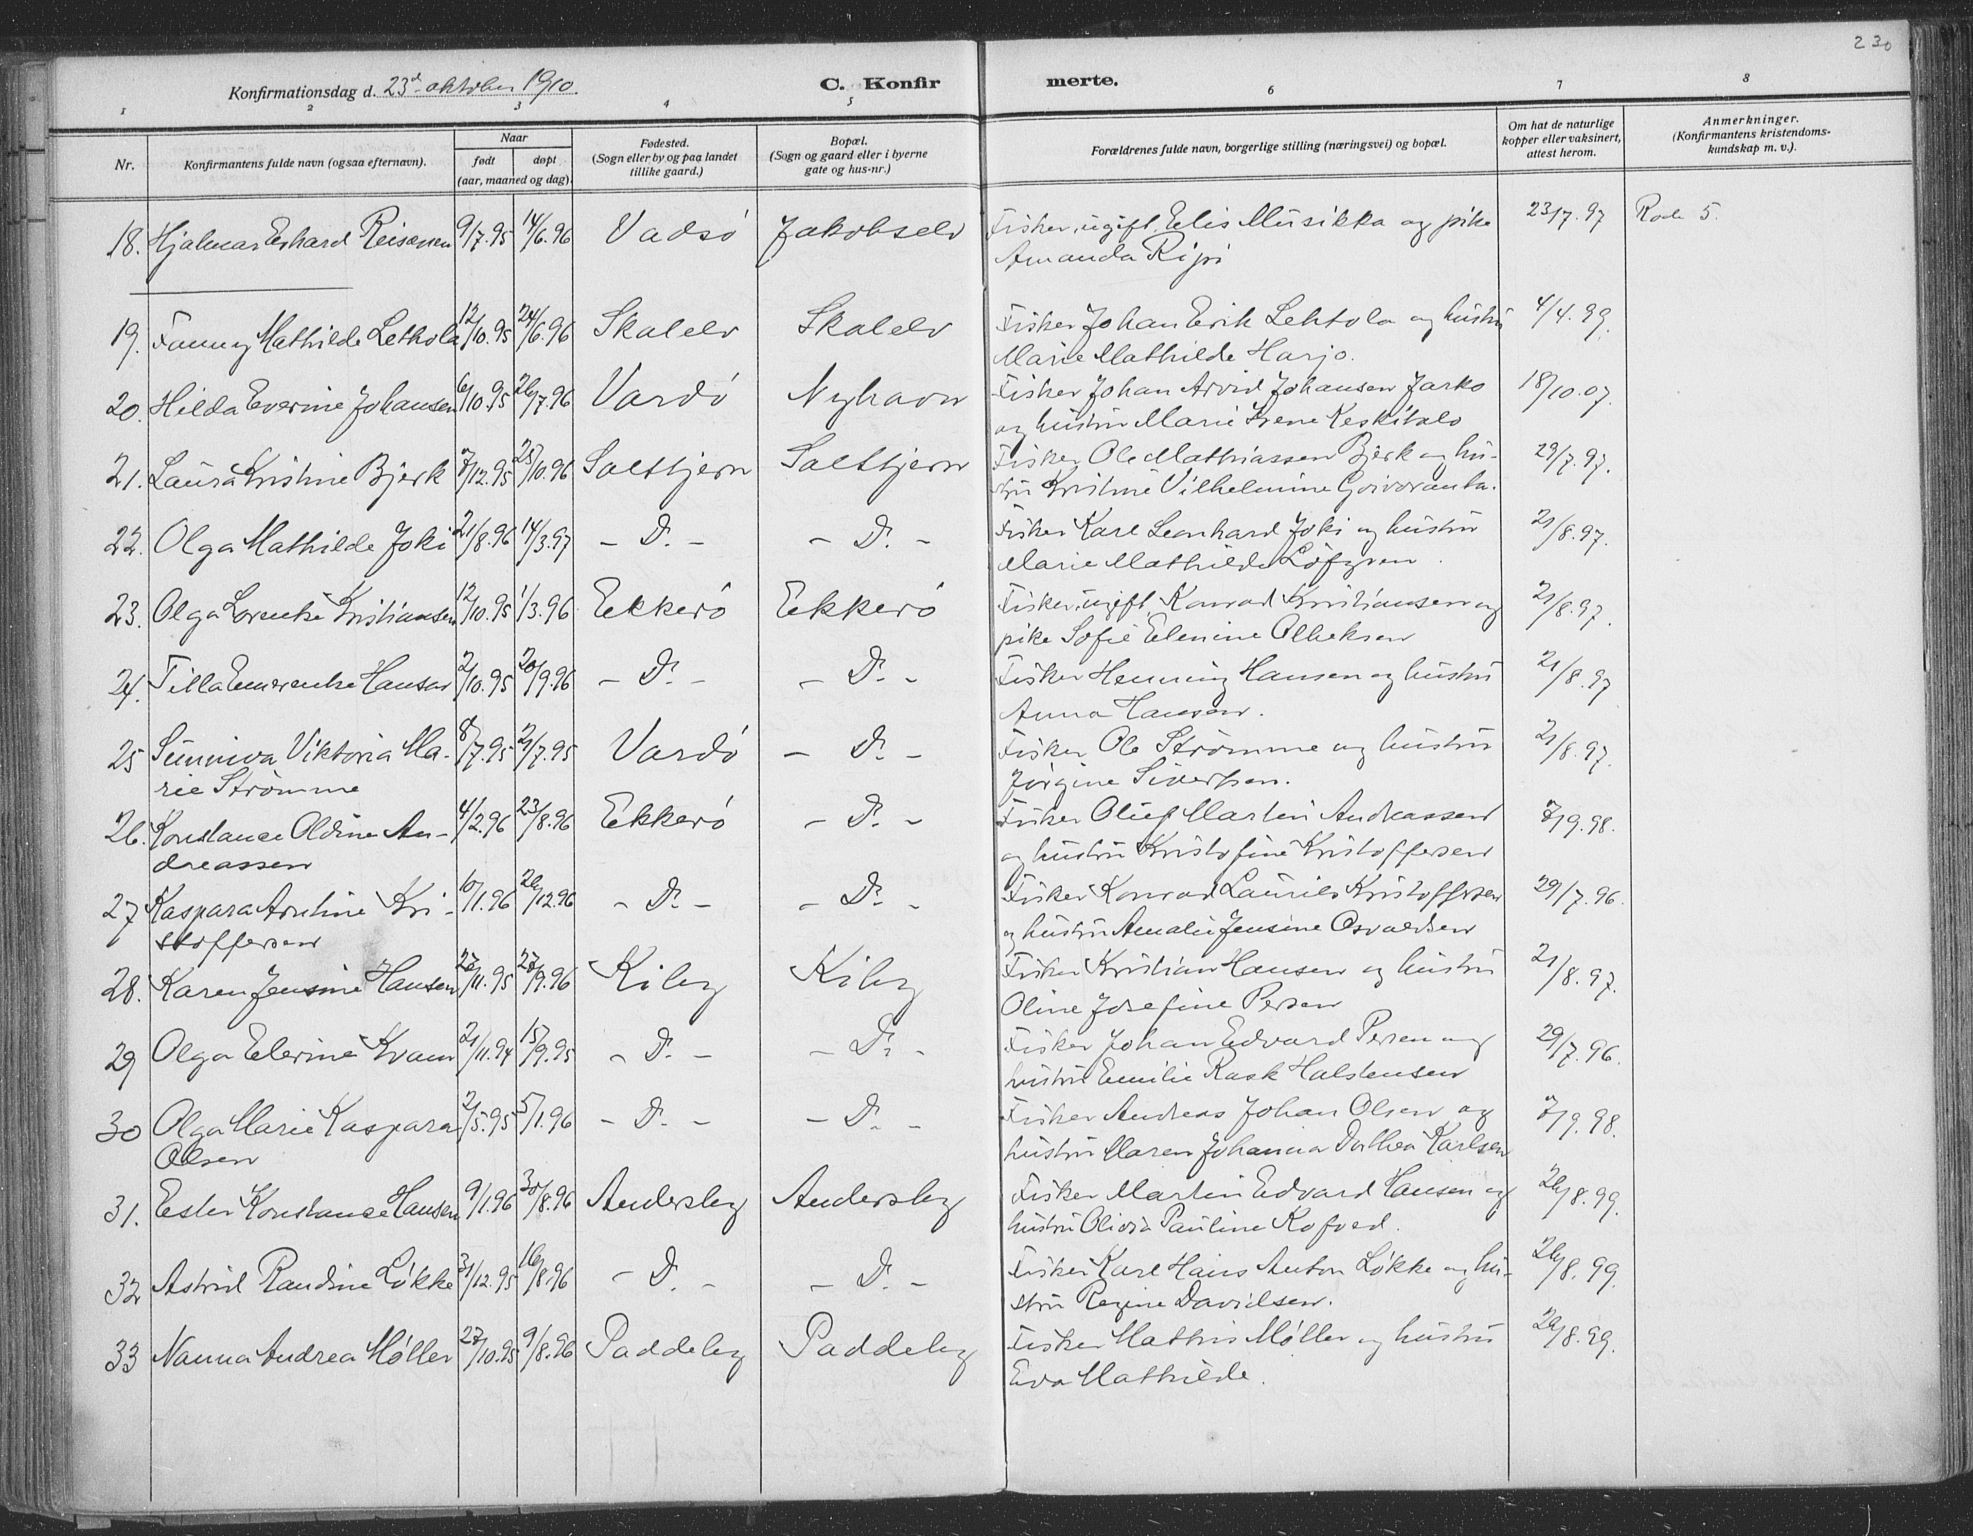 230
Konfirmationsdag d. 23d oktober 1910.
C. Konfir merte.
1 2 3 4 5 6 7 8
Nr. Konfirmantens fulde navn (ogsaa efternavn). Naar født døpt (aar, maaned og dag). Fødested. (Sogn eller by og paa landet tillike gaard.) Bopæl. (Sogn og gaard eller i byerne gate og hus-nr.) Forældrenes fulde navn, borgerlige stilling (næringsvei) og bopæl. Om hat de naturlige kopper eller vaksinert, attest herom. Anmerkninger. (Konfirmantens kristendoms-kundskap m. v.).
18. Hjalmar Erhard Reisænen 9/7.95 14/6.96 Vadsö Jakobselv Fisker, ugift, Elis Musikka og pike 23/7.97
Amanda Ripi
19. Fanny Mathilde Lethola 12/10.95 24/6.96 Skalelv Skalelv Fisker Johan Erik Lehtola og hustru 4/4.99.
Marie Mathilde Harjo.
20. Hilda Everine Johansen 6/10.95 26/7.96 Vardö Nyhavn Fisker Johan Arvid Johansen Jarko 18/10.07.
og hustru Marie Irene Keskitalo
21. Laura Kristine Bjerk 7/12.95 25/10.96 Saltbjern Saltbjern Fisker Ole Mathiassen Bjerk og hu- 29/7.97.
stru Kristine Vilhelmine
22. Olga Mathilde Joki 21/8.96 14/3.97 - D. - - D. - Fisker Karl Leonhard Joki og hustru 21/8.97.
Marie Mathilde Löfgren
23. Olga Lorentse Kristiansen 12/10.95 1/3.96 Ekkerö Ekkerö Fisker, ugift, Konrad Kristiansen og 21/8.97.
pike Sofie Elenine
24. Tilla Emerentse Hansen 2/10.95 20/9.96 - D. - - D. - Fisker Henning Hansen og hustru 21/8.97
Anna Hansen.
25 Sunniva Viktoria Ma- 8/7.95 21/7.95 Vardö - D. - Fisker Ole Strömme og hustru 21/8.97.
rie Strömme Jörgine Sivertsen.
26. Konstance Oldine An- 4/2.96 23/8.96 Ekkerö - D. - Fisker Oluf Martin Andreassen 7/9.98.
dreassen og hustru Kristofine Kristoffersen
27 Kaspara Arntine Kri- 10/1.96 26/12.96 - D. - - D. - Fisker Konrad Laurits Kristoffersen 29/7.96.
stoffersen og hustru Amalie Jensine Osvaldsen
28. Karen Jensine Hansen 22/11.95 27/9.96 Kiby Kiby Fisker Kristian Hansen og hustru 21/8.97.
Oline Josefine Persen
29 Olga Elerine Kvam 21/11.94 15/9.95 - D. - - D. - Fisker Johan Edvard Persen og 29/7.96.
hustru Emilie Rask Halstensen
30 Olga Marie Kaspara 2/5.95 5/1.96 - D. - - D. - Fisker Andreas Johan Olsen og 7/9.98.
Olsen hustru Maren Johanna Dorthea Karlsen
31. Ester Konstance Hansen 9/1.96 30/8.96 Andersby Andersby Fisker Martin Edvard Hansen og 26/8.99.
hustru Olivia Pauline Kofoed.
32 Astrid Randine Løkke 31/12.95 16/8.96 - D. - - D. - Fisker Karl Hans Anton Løkke og hu- 26/8.99.
stru Regine Davidsen.
33 Nanna Andrea Møller 27/10.95 9/8.96 Paddeby Paddeby Fisker Mathis Møller og hustru 26/8.99.
Eva Mathilde.